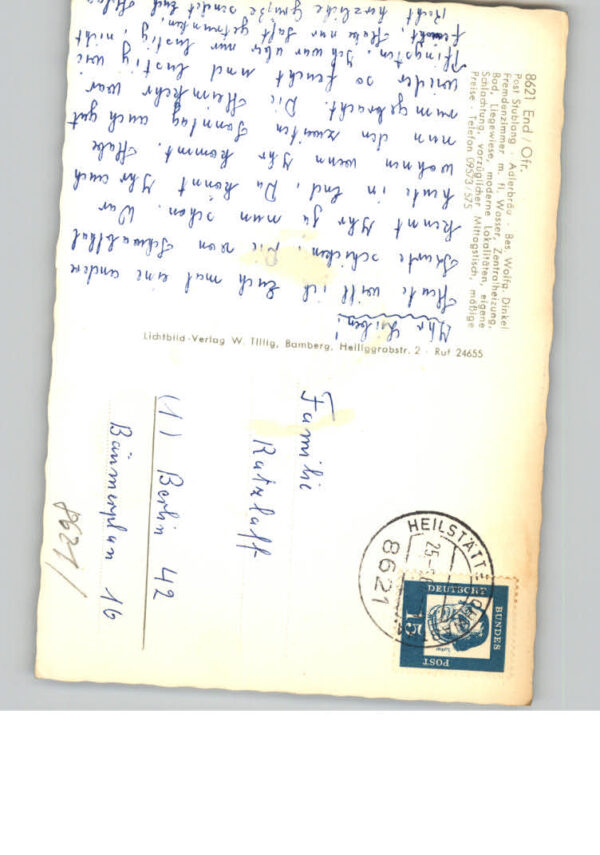 8621 End / Ofr.
Post Stublang · Adlerbräu · Bes. Wolfg. Dinkel
Fremdenzimmer m. fl. Wasser, Zentralheizung,
Bad, Liegewiese, moderne Lokalitäten, eigene
Schlachtung, vorzüglicher Mittagstisch, mäßige
Preise · Telefon 09573/575
Ihr Lieben!
Heute will ich Euch mal eine andere
Karte schicken, die von Schwabthal
kennt Ihr ja nun schon. War
heute in End, da könnt Ihr auch
wohnen wenn Ihr kommt. Habe
nun den zweiten Sonntag auch gut
rumgebracht. Die Heimkehr war
wieder so feucht und lustig wie
Pfingsten. Ich war aber nur lustig, nicht
feucht. Habe nur Saft getrunken.
Recht herzliche Grüße sendet Euch
Lichtbild-Verlag W. Tillig, Bamberg, Heiliggrabstr. 2 · Ruf 24655
Familie
Ratzlaff
(1) Berlin 42
Bäumerplan 16
8621/
HEILSTÄTTE
25.
8621
DEUTSCHE
BUNDES
POST
15